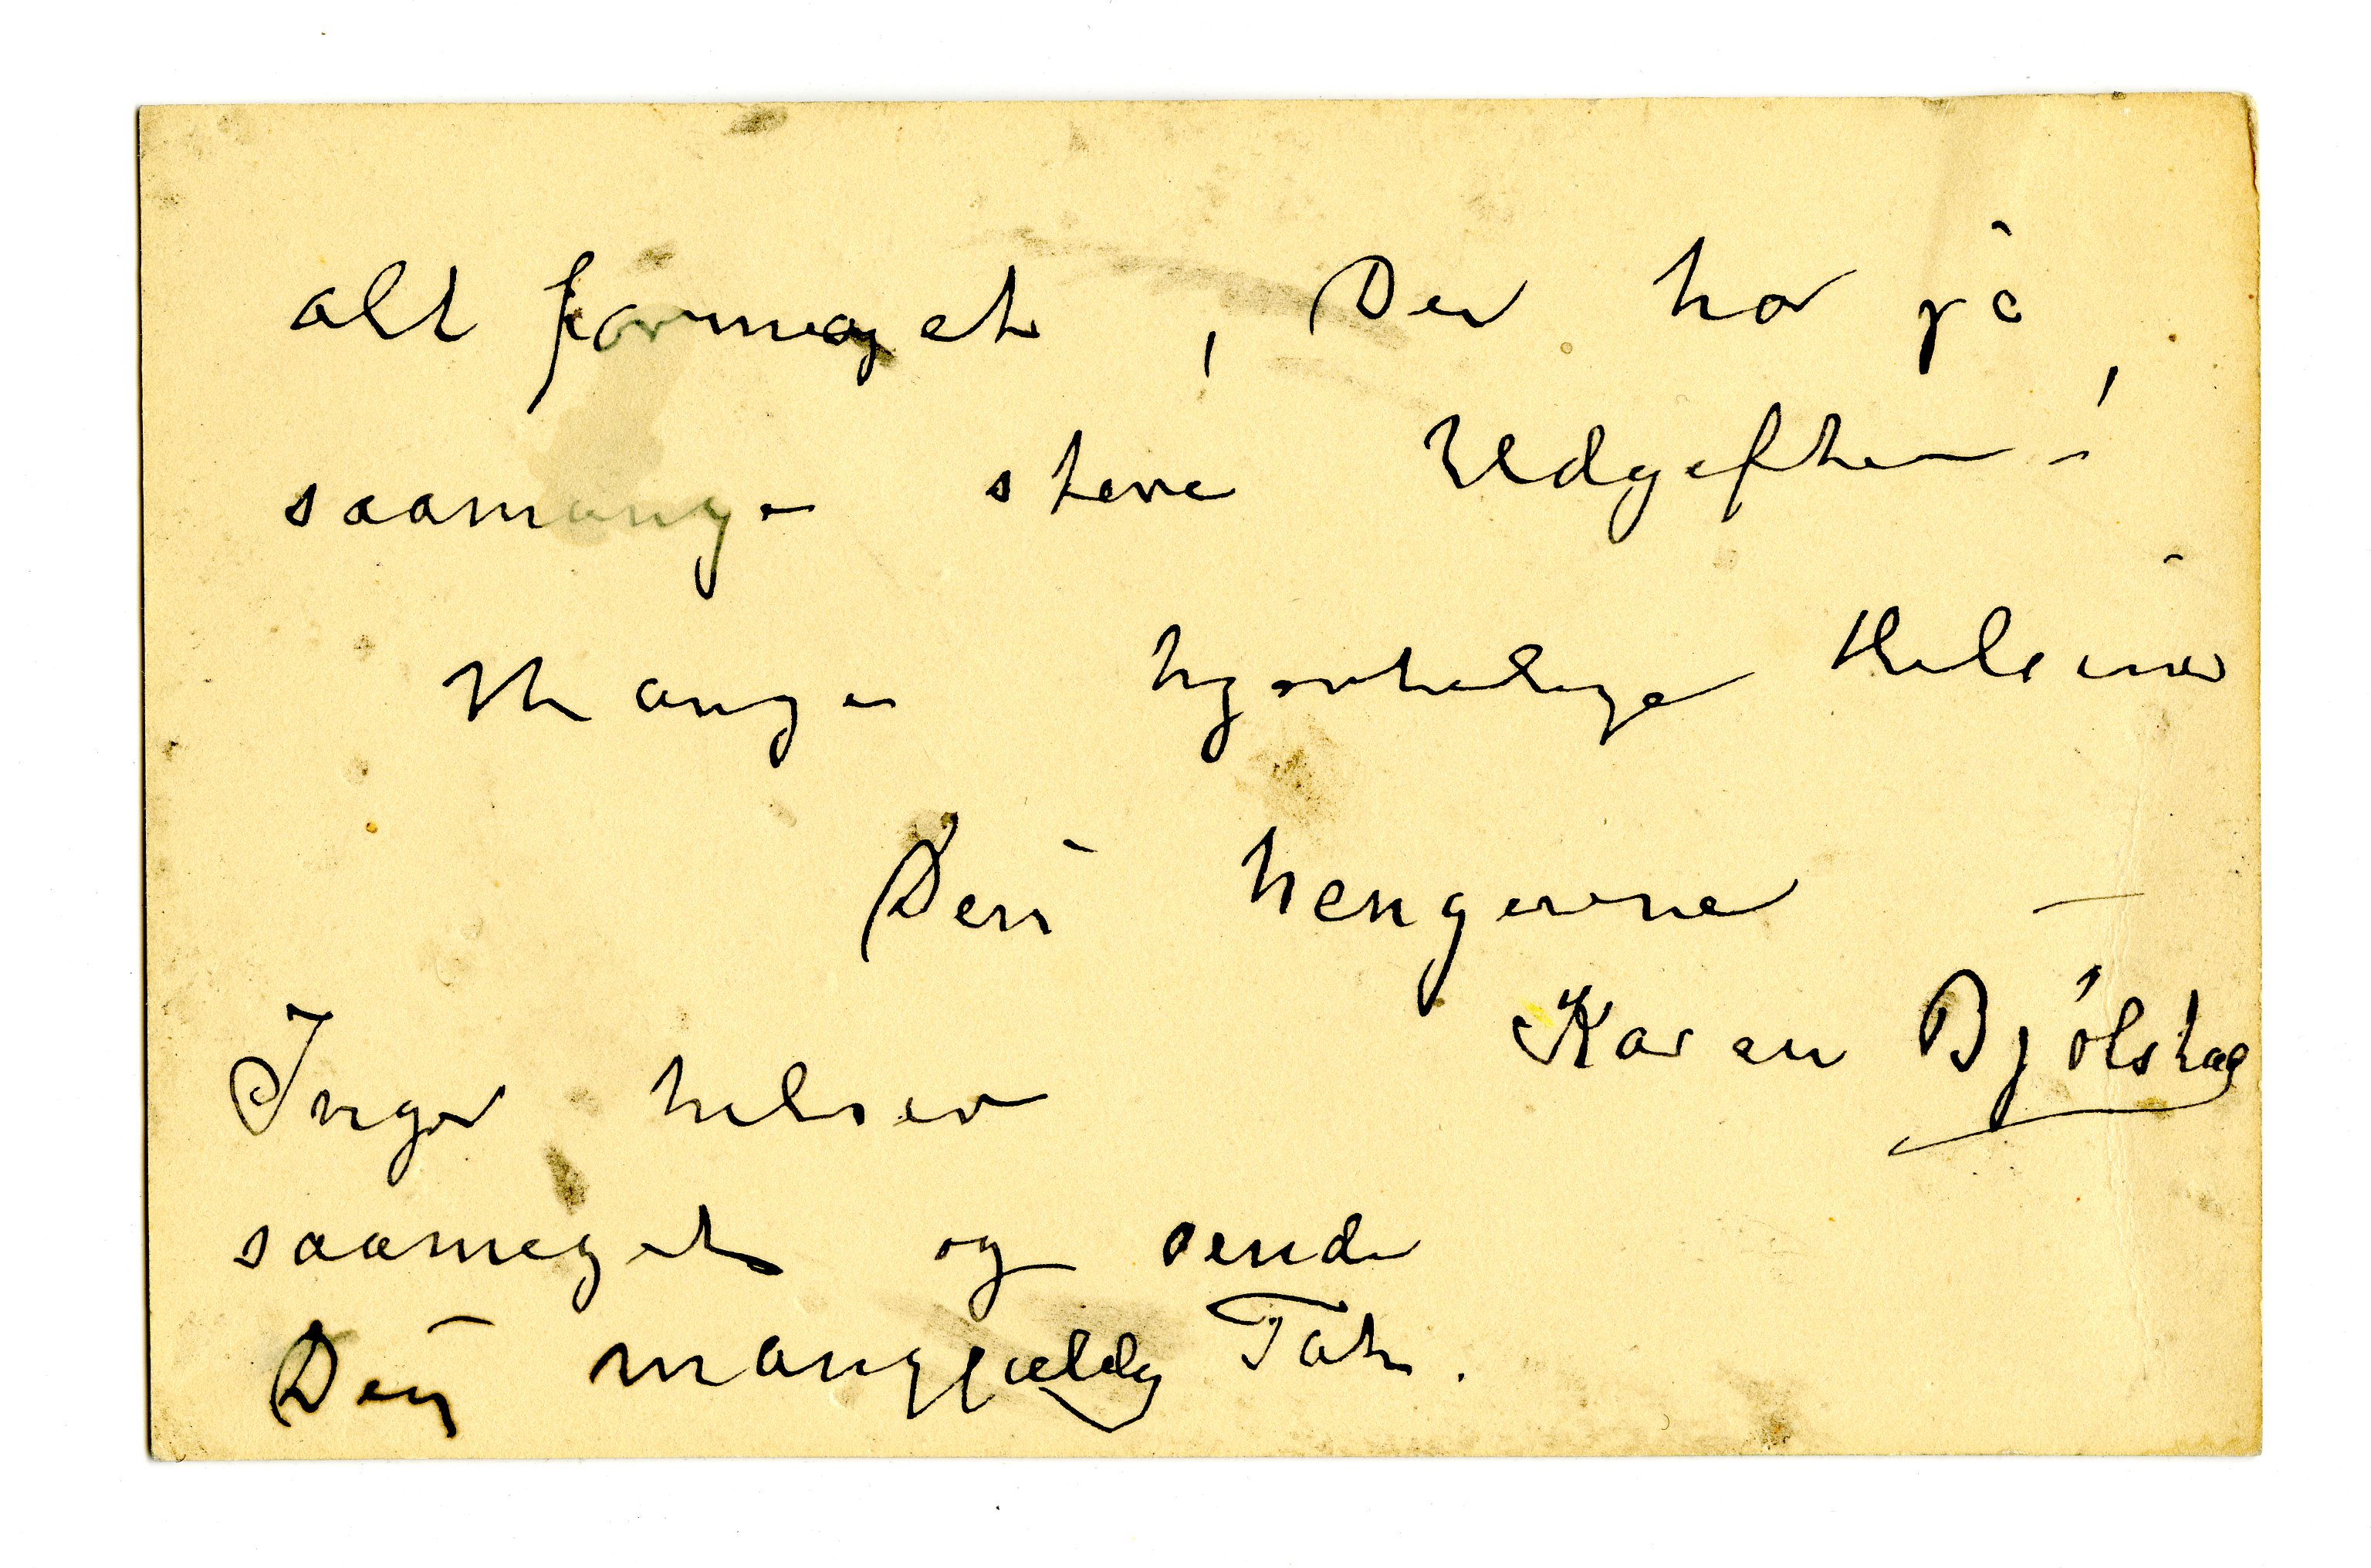 alt formeget, Der har jo,
saamange store Udgifter!
Mange hjertelige Hilsener
Deres hengivne —
Karen Bjølstad
Inger hilser
saameget og sender
Dem mangfoldig Tak.